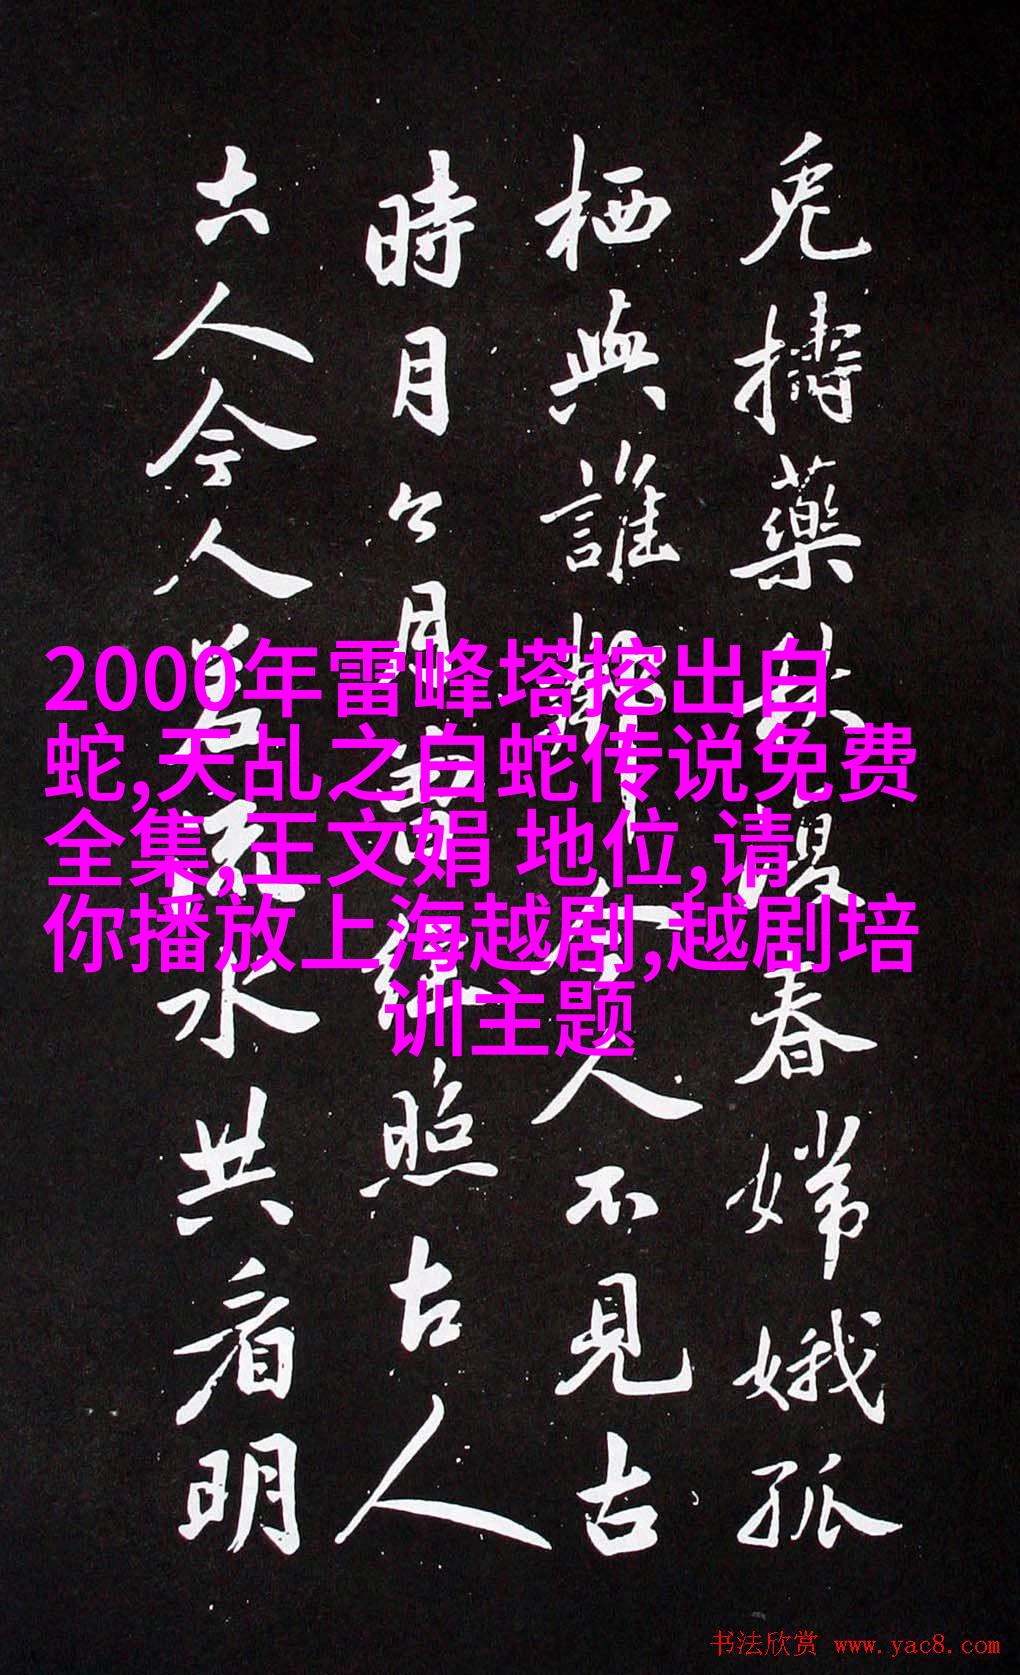 兔擣藥秋復春嫦娥孤
栖與誰鄰今人不見古
時月今月曾經照古人
古人今人若流水共看明
2000年雷峰塔挖出白
蛇,天乩之白蛇传说免费
全集,王文娟 地位,请
你播放上海越剧,越剧培
训主题
书法欣赏 www.yac8.com